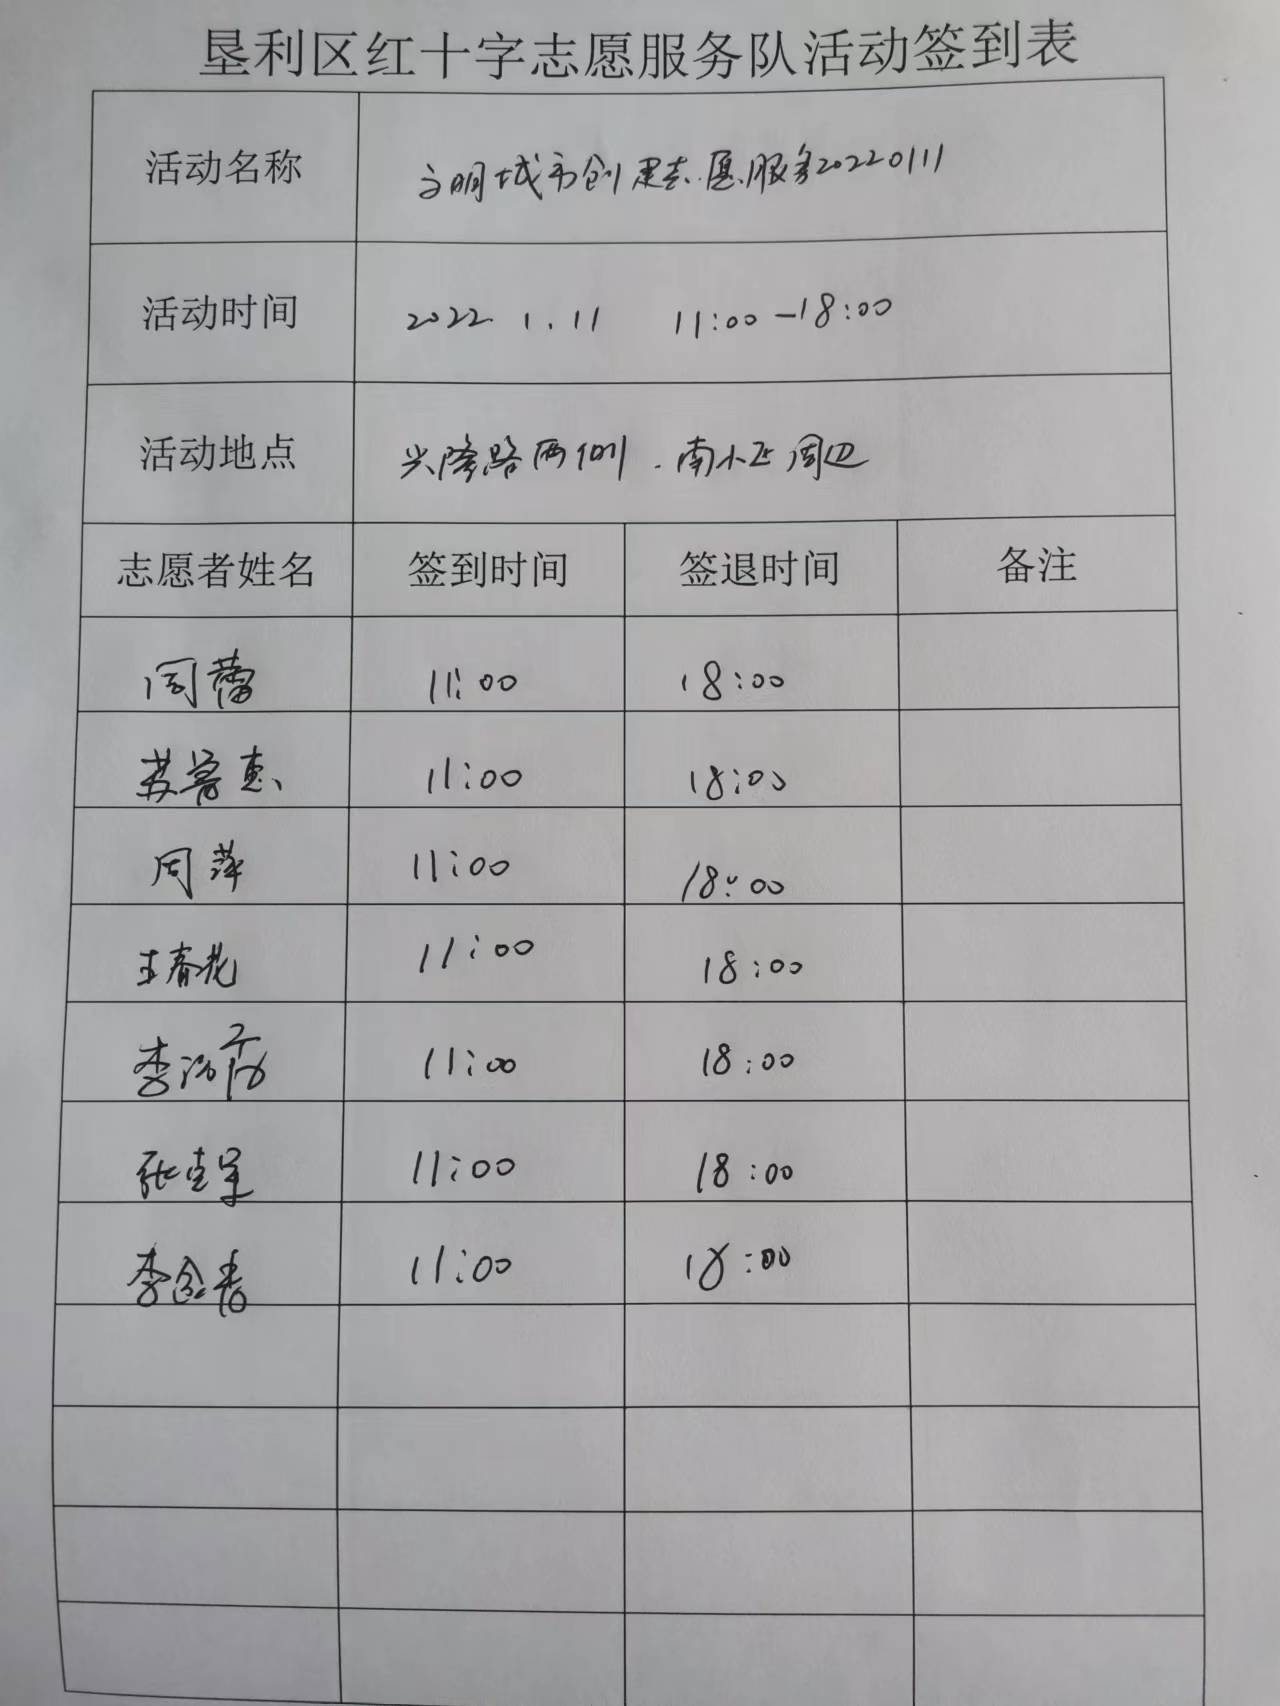 垦利区红十字志愿服务队活动签到表
活动名称 文明城市创建志愿服务20220111
活动时间 2022.1.11 11:00-18:00
活动地点 兴隆路两侧.南小区周边
志愿者姓名 签到时间 签退时间 备注
周蕾 11:00 18:00
苏鲁惠 11:00 18:00
周萍 11:00 18:00
王春花 11:00 18:00
李 11:00 18:00
张 11:00 18:00
李金香 11:00 18:00